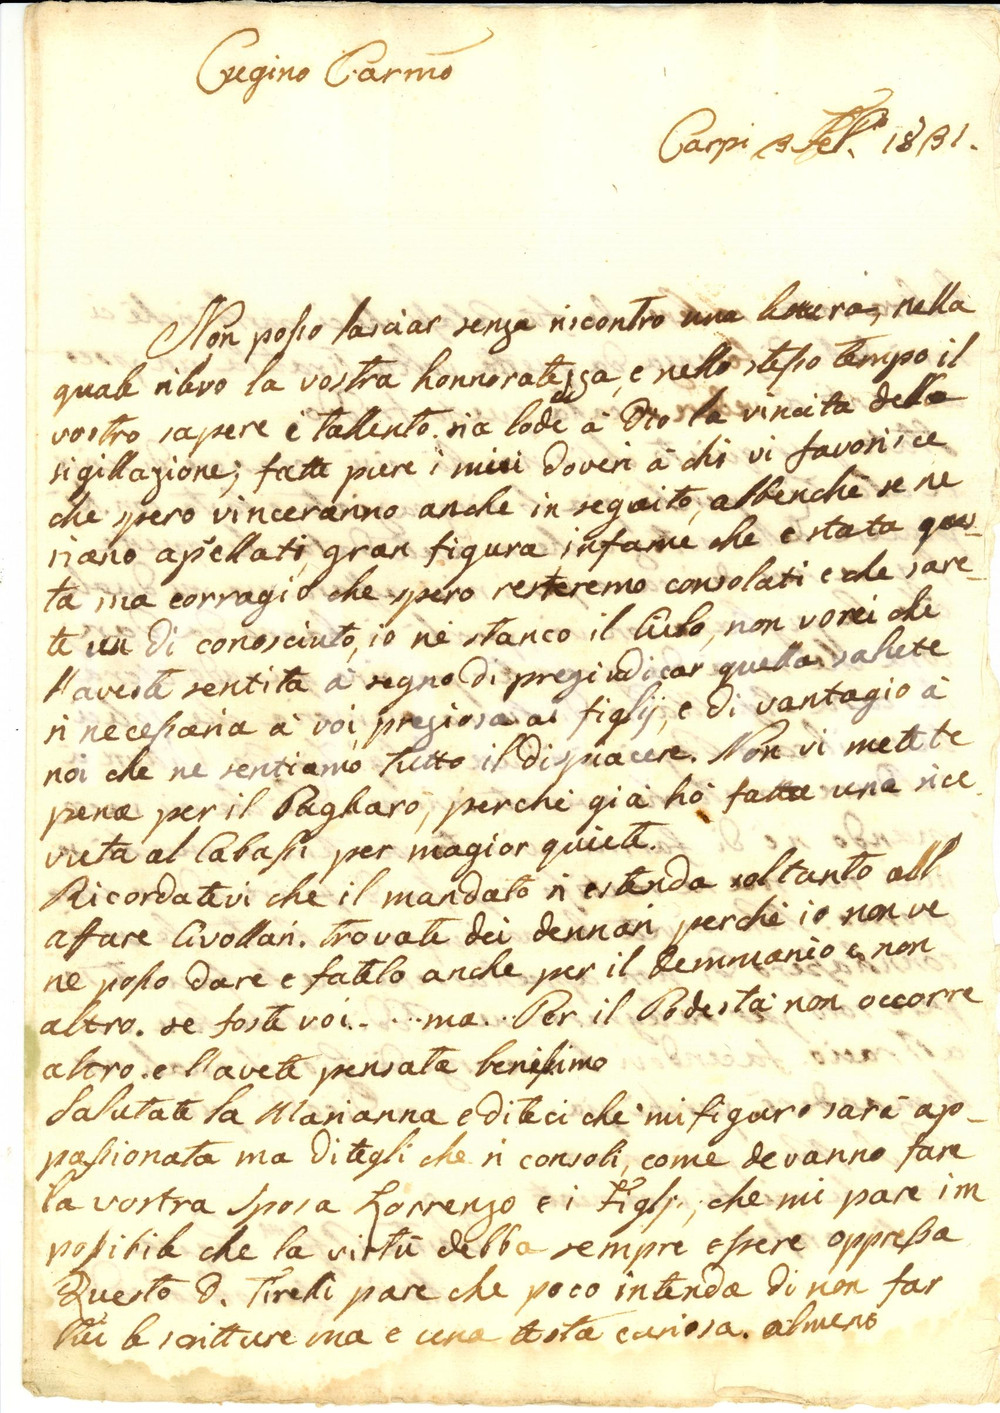 Cugino Carmo
Carpi 3 Feb.º 1831.
Non posso lasciar senza riscontro una lettera, nella
quale rilevo la vostra honnoratezza, e nello stesso tempo il
vostro sapere e tallento. sia lode à Dio la vincita della
sigillazione; fatte pure i miei doveri à chi vi favorisce
che spero vinceranno anche in seguito, abbenchè se ne
siano apellati, gran figura infame che e stata ques-
ta ma corragio che spero resteremo consolati e che sare-
te un dì conosciuto, io nè stanco il Cielo, non vorei che
l'aveste sentita à segno di pregiudicar quella salute
si necessaria à voi, preziosa ai figlij, e di vantagio à
noi che ne sentiamo tutto il dispiacere. Non vi mettete
pena per il Pagharò, perche già hò fatta una rice
vuta al Cabassi per magior quiete.
Ricordatevi che il mandato si estenda soltanto all
affare Civollari. trovate dei dennari perchè io non ve
ne posso dare e fatelo anche per il Demmanio e non
altro. se foste voi.. ... ma... Per il Podestà non occorre
altro. e l'avete pensata benissimo
Salutate la Marianna e diteci che mi figuro sarà ap-
passionata ma ditegli che si consoli, come devanno fare
la vostra sposa Lorrenzo e i Figlj, che mi pare im
possibile che la virtù debba sempre essere oppressa
Questo D. Tirelli pare che poco intenda di non far
lui le scritture ma e una testa curiosa. almeno